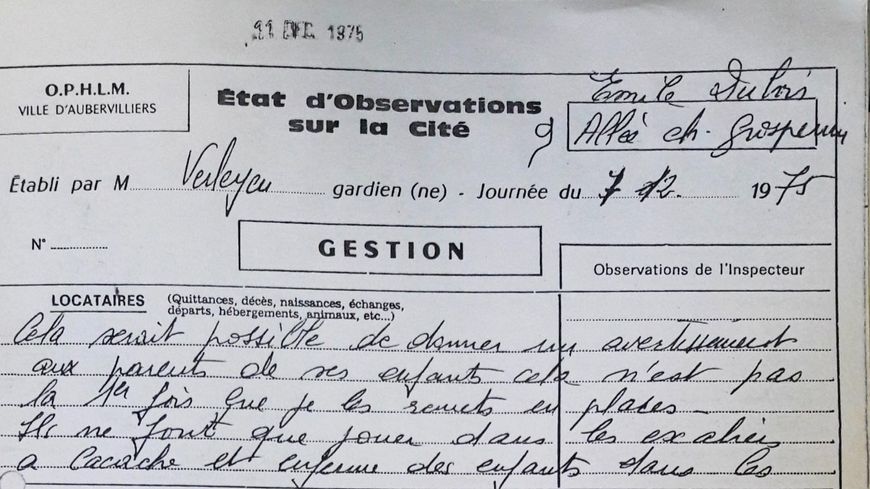 11 DEC. 1975
O.P.H.L.M.
VILLE D'AUBERVILLIERS
État d'Observations
sur la Cité
Emile Dubois
9 Allée ch. Grosperrin
Établi par M Verleyen gardien (ne) - Journée du 7 12 1975
N°
GESTION
Observations de l'Inspecteur
LOCATAIRES (Quittances, décès, naissances, échanges,
départs, hébergements, animaux, etc...)
Cela serait possible de donner un avertissement
aux parents de ses enfants cela n'est pas
la 1er fois que je les remets en places -
Ils ne font que jouer dans les excaliers
a cacache et enferme des enfants dans les